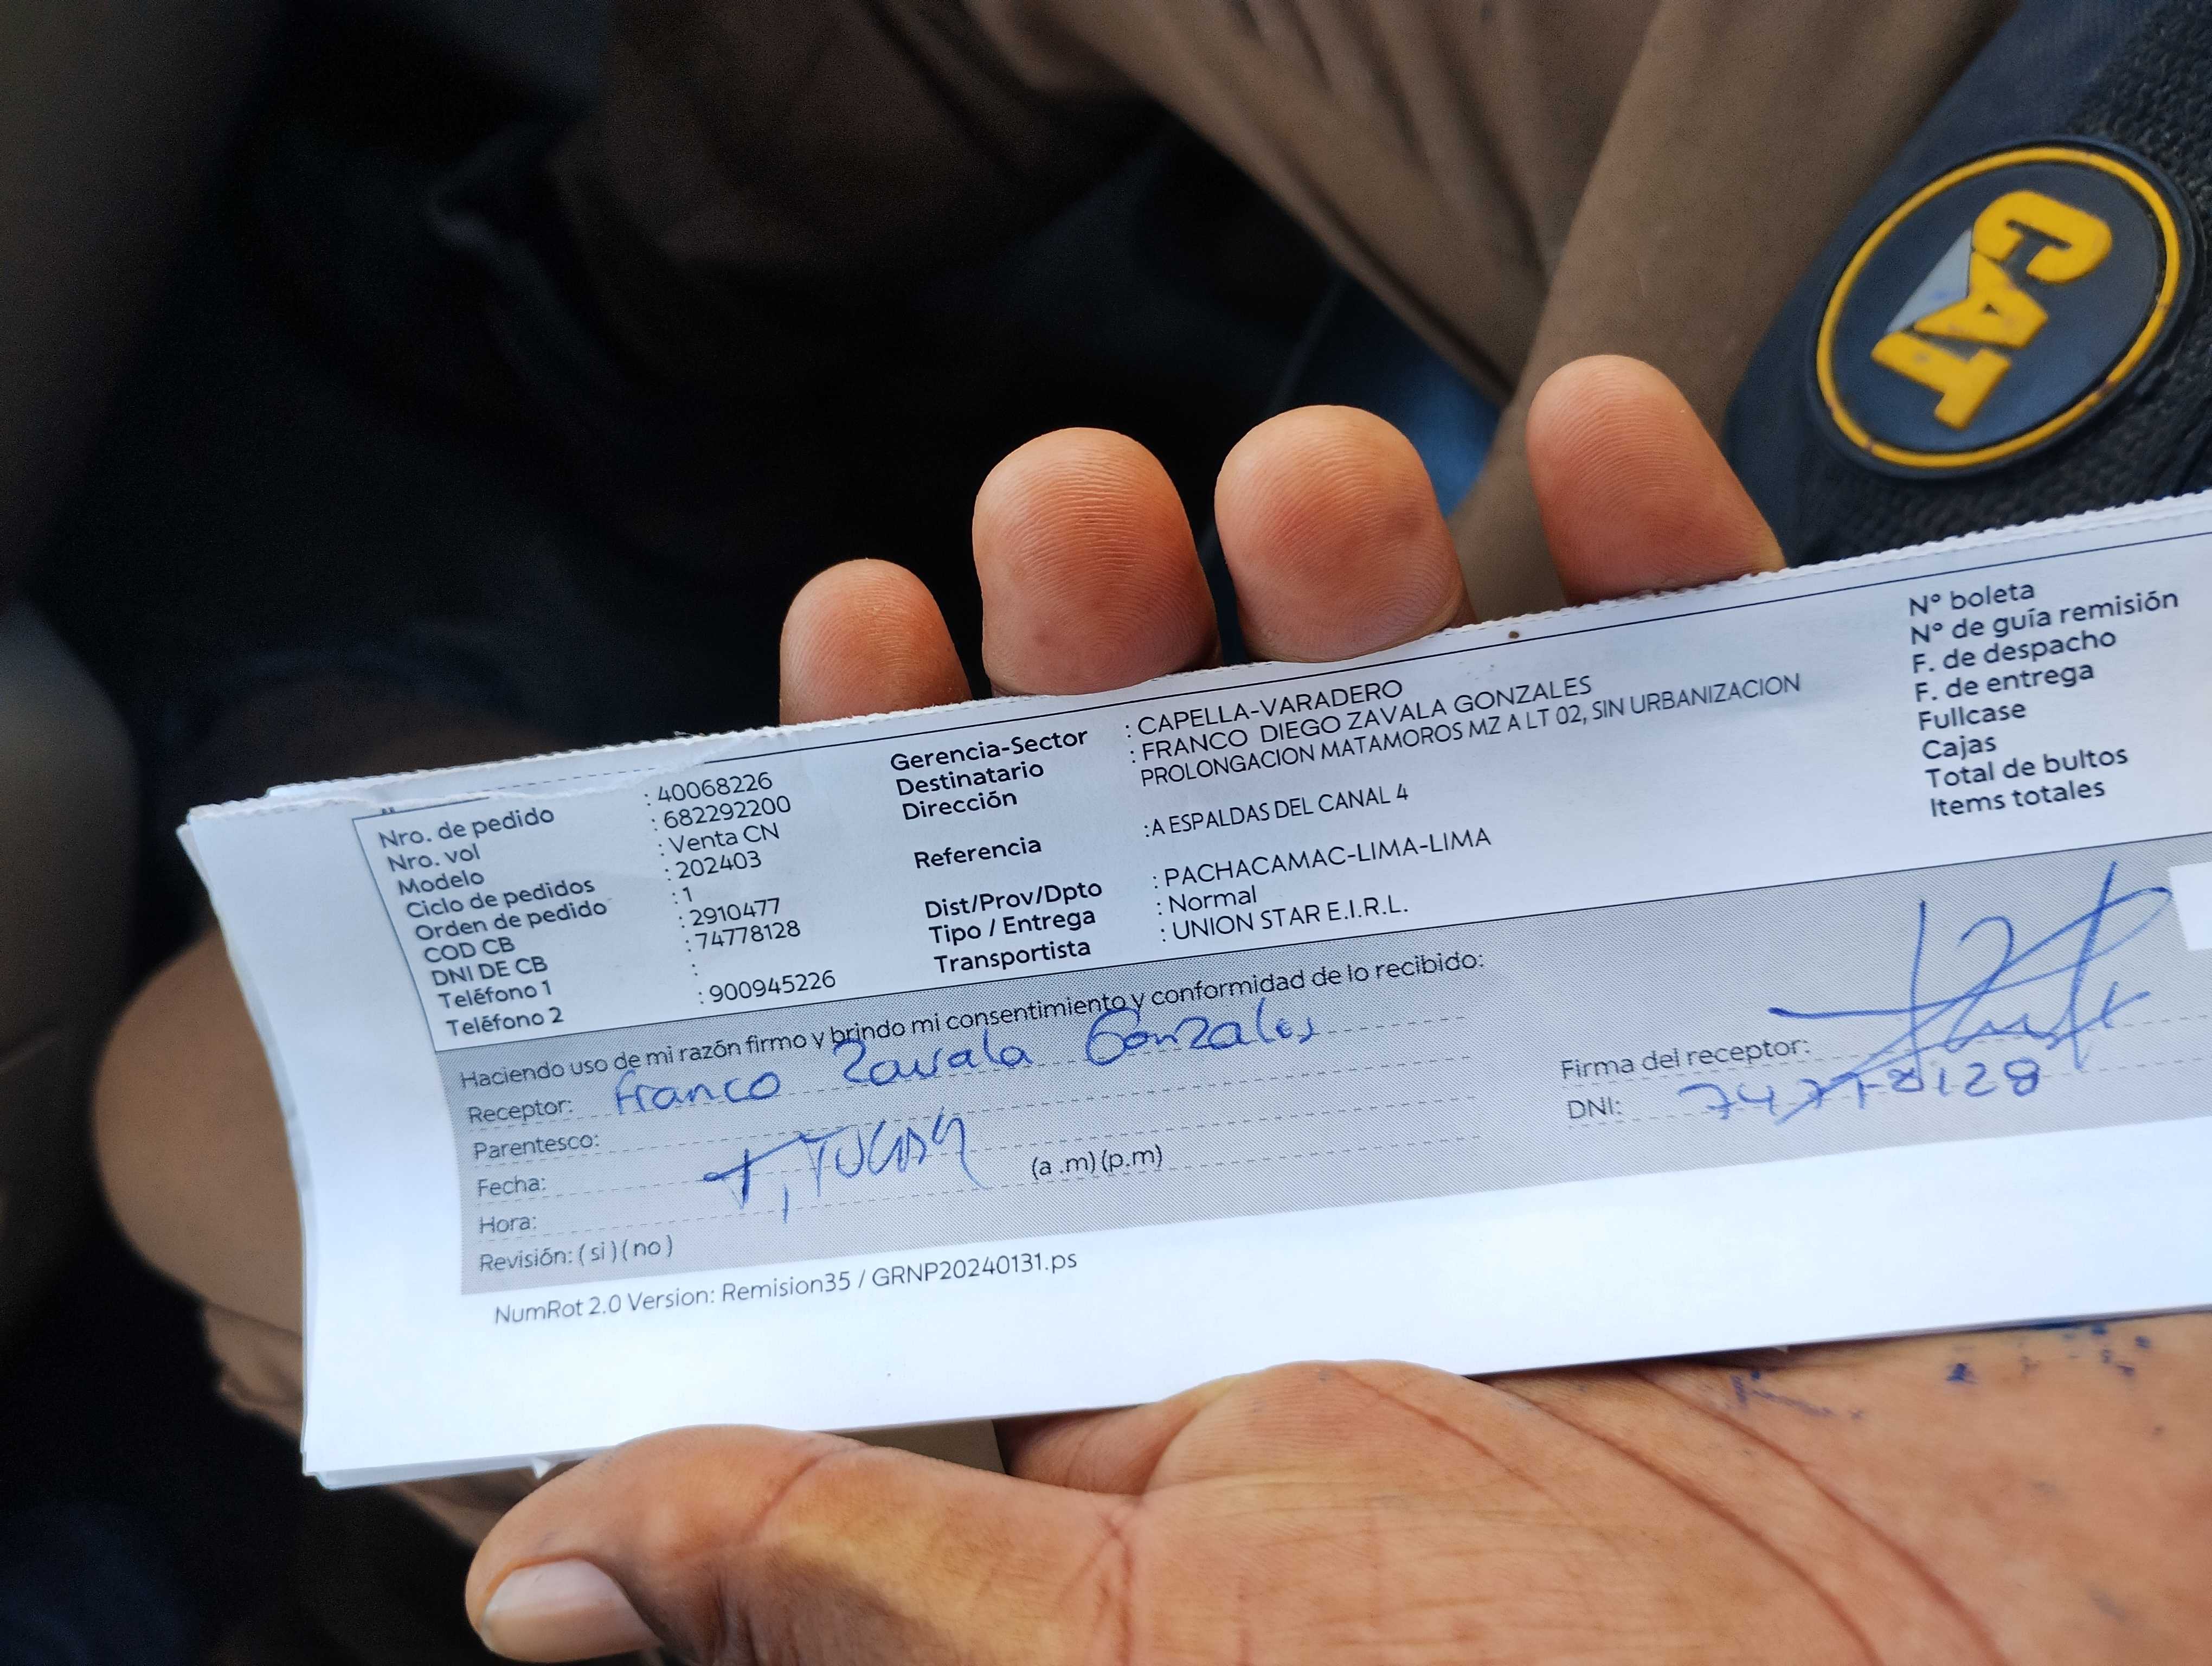 CAT
Nro. de pedido : 40068226
Nro. vol : 682292200
Modelo : Venta CN
Ciclo de pedidos : 202403
Orden de pedido : 1
COD CB : 2910477
DNI DE CB : 74778128
Teléfono 1 :
Teléfono 2 : 900945226
Gerencia-Sector : CAPELLA-VARADERO
Destinatario : FRANCO DIEGO ZAVALA GONZALES
Dirección PROLONGACION MATAMOROS MZ A LT 02, SIN URBANIZACION
Referencia :A ESPALDAS DEL CANAL 4
Dist/Prov/Dpto : PACHACAMAC-LIMA-LIMA
Tipo / Entrega : Normal
Transportista : UNION STAR E.I.R.L.
N° boleta
N° de guía remisión
F. de despacho
F. de entrega
Fullcase
Cajas
Total de bultos
Items totales
Haciendo uso de mi razón firmo y brindo mi consentimiento y conformidad de lo recibido:
Receptor: Franco Zavala Gonzales
Parentesco:
Fecha:
Hora: (a .m) (p.m)
Revisión: ( si ) ( no )
Firma del receptor:
DNI: 74778128
NumRot 2.0 Version: Remision35 / GRNP20240131.ps